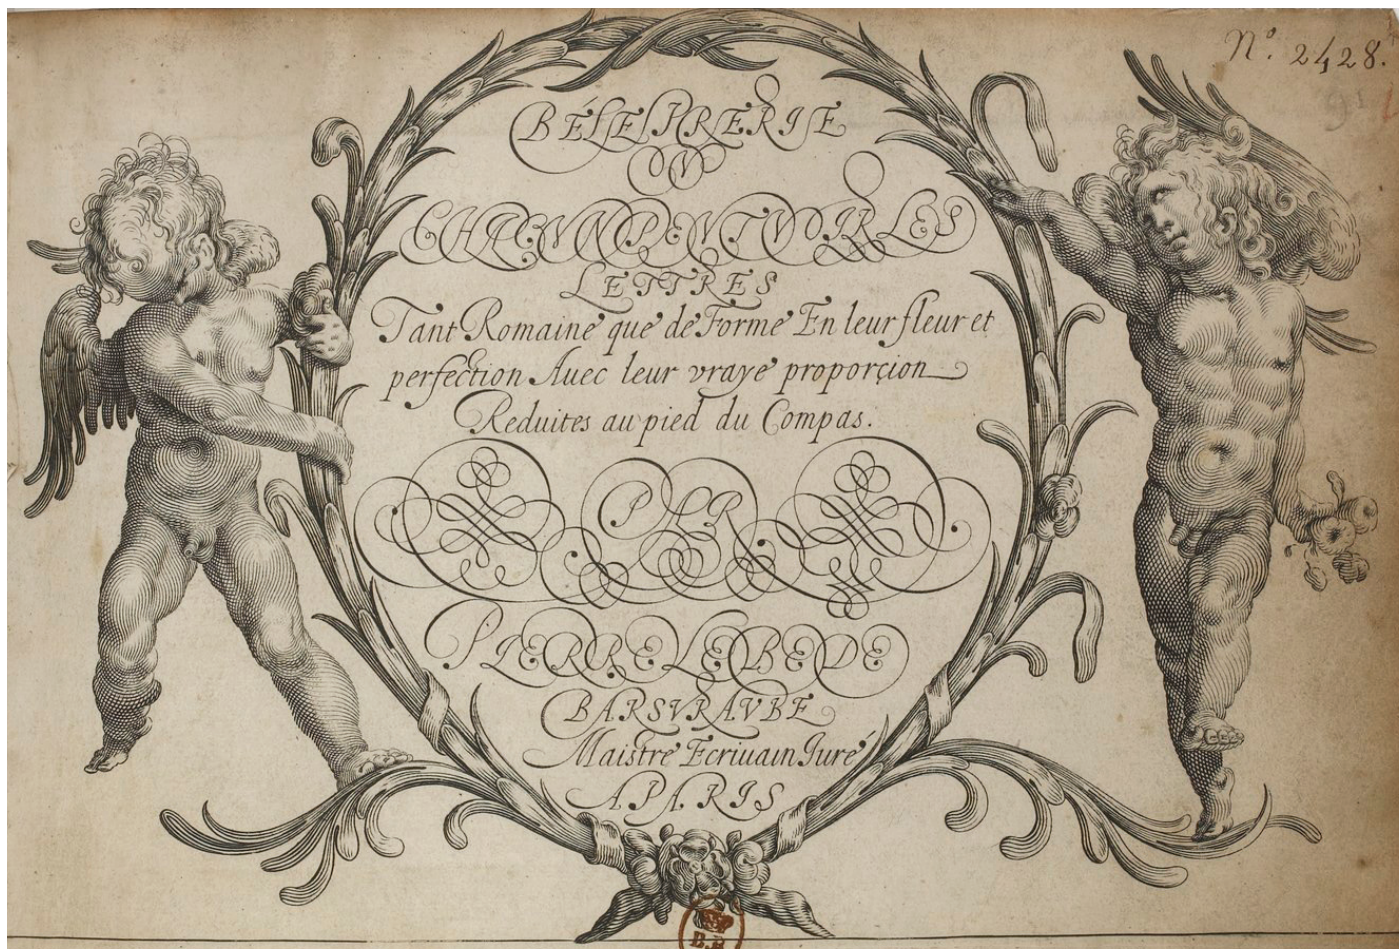 Nº. 2428.
BÉLE PRERIE
OV
CHACVN PEVT VOIR LES
LETTRES
Tant Romaine que de Forme En leur fleur et
perfection Auec leur vraye proporçion
Reduites au pied du Compas.
PAR
PIERRE LE BE DE
BAR SVR AVBE
Maistre Ecriuain Juré
A PARIS